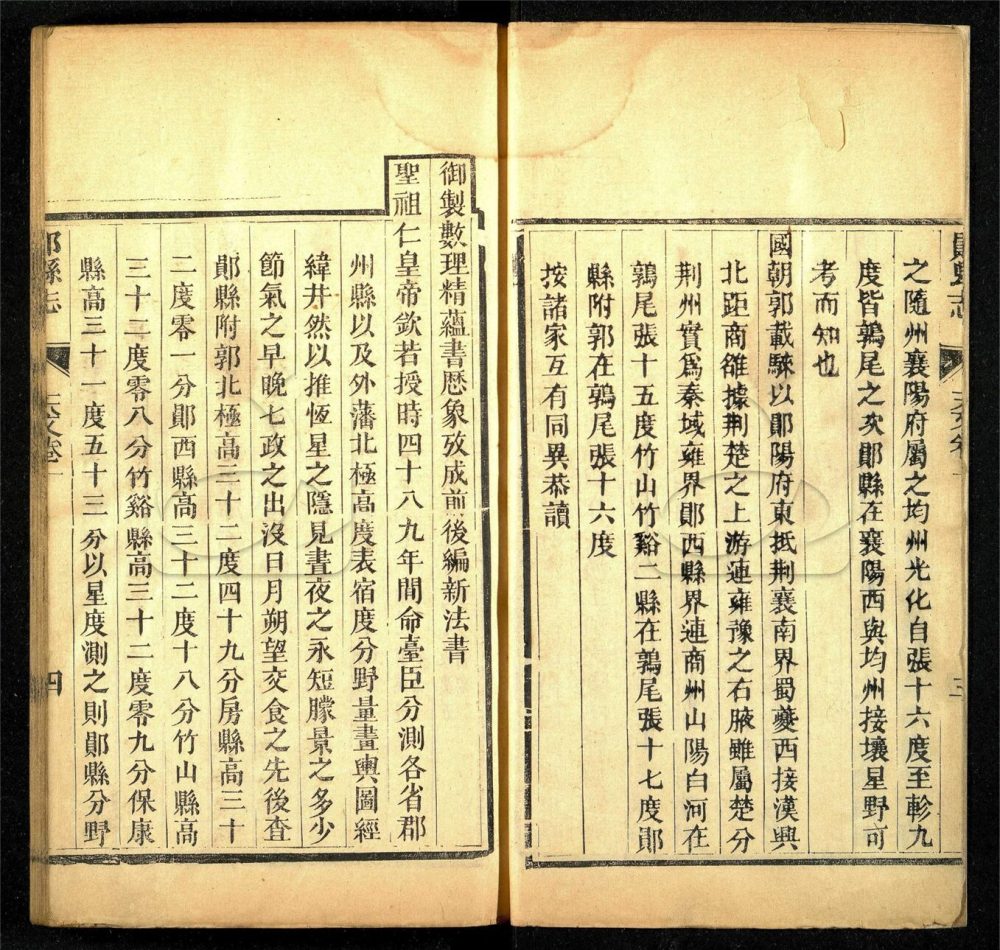 之隨州襄陽府屬之均州光化自張十六度至軫九
度皆鶉尾之次鄖縣在襄陽西與均州接壤星野可
考而知也
國朝郭載騋以鄖陽府東抵荆襄南界蜀夔西接漢興
北距商雒據荆楚之上游連雍豫之右腋雖屬楚分
荆州實爲秦域雍界鄖西縣界連商州山陽白河在
鶉尾張十五度竹山竹谿二縣在鶉尾張十七度鄖
縣附郭在鶉尾張十六度
按諸家互有同異恭讀
御製數理精蘊書歷象攷成前後編新法書
聖祖仁皇帝欽若授時四十八九年間命臺臣分測各省郡
州縣以及外藩北極高度表宿度分野量畫輿圖經
緯井然以推恆星之隱見晝夜之永短矇景之多少
節氣之早晚七政之出沒日月朔望交食之先後查
鄖縣附郭北極高三十二度四十九分房縣高三十
二度零一分鄖西縣高三十二度十八分竹山縣高
三十二度零八分竹谿縣高三十二度零九分保康
縣高三十一度五十三分以星度測之則鄖縣分野
縣志
四